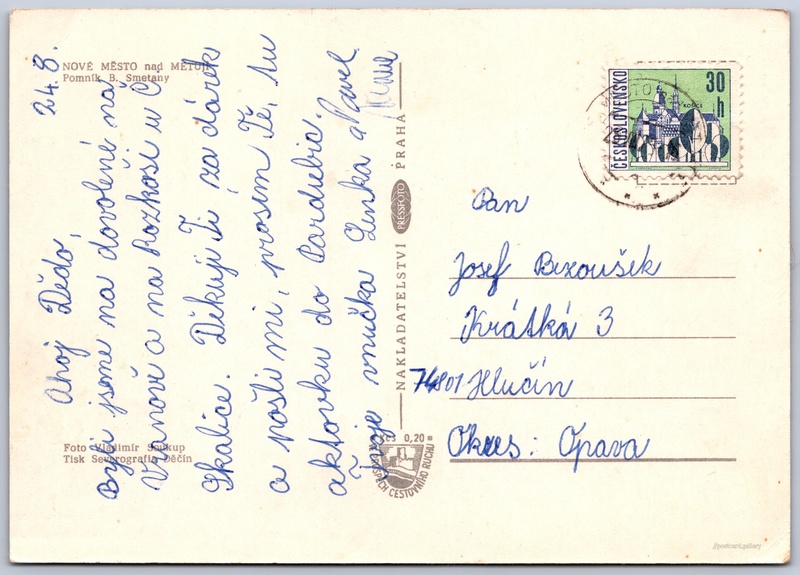 NOVÉ MĚSTO nad METUJÍ
Pomník B. Smetany
24.8.
Ahoj Dědo,
Byli jsme na dovolené na
Vranově a na Rozkoši u Č
Skalice. Děkuji Ti za dárek
a pošli mi, prosím Tě, tu
aktovku do Pardubic.
Tvoje vnučka Lenka a Pavel
Foto Vladimír Soukup
Tisk Severografia Děčín
NAKLADATELSTVÍ PRESSFOTO PRAHA
0,20
VE PROSPĚCH CESTOVNÍHO RUCHU
ČESKOSLOVENSKO
30 h
KOŠICE
Pan
Josef Bezoušek
Krátká 3
74801 Hlučín
Okres: Opava
postcard.gallery